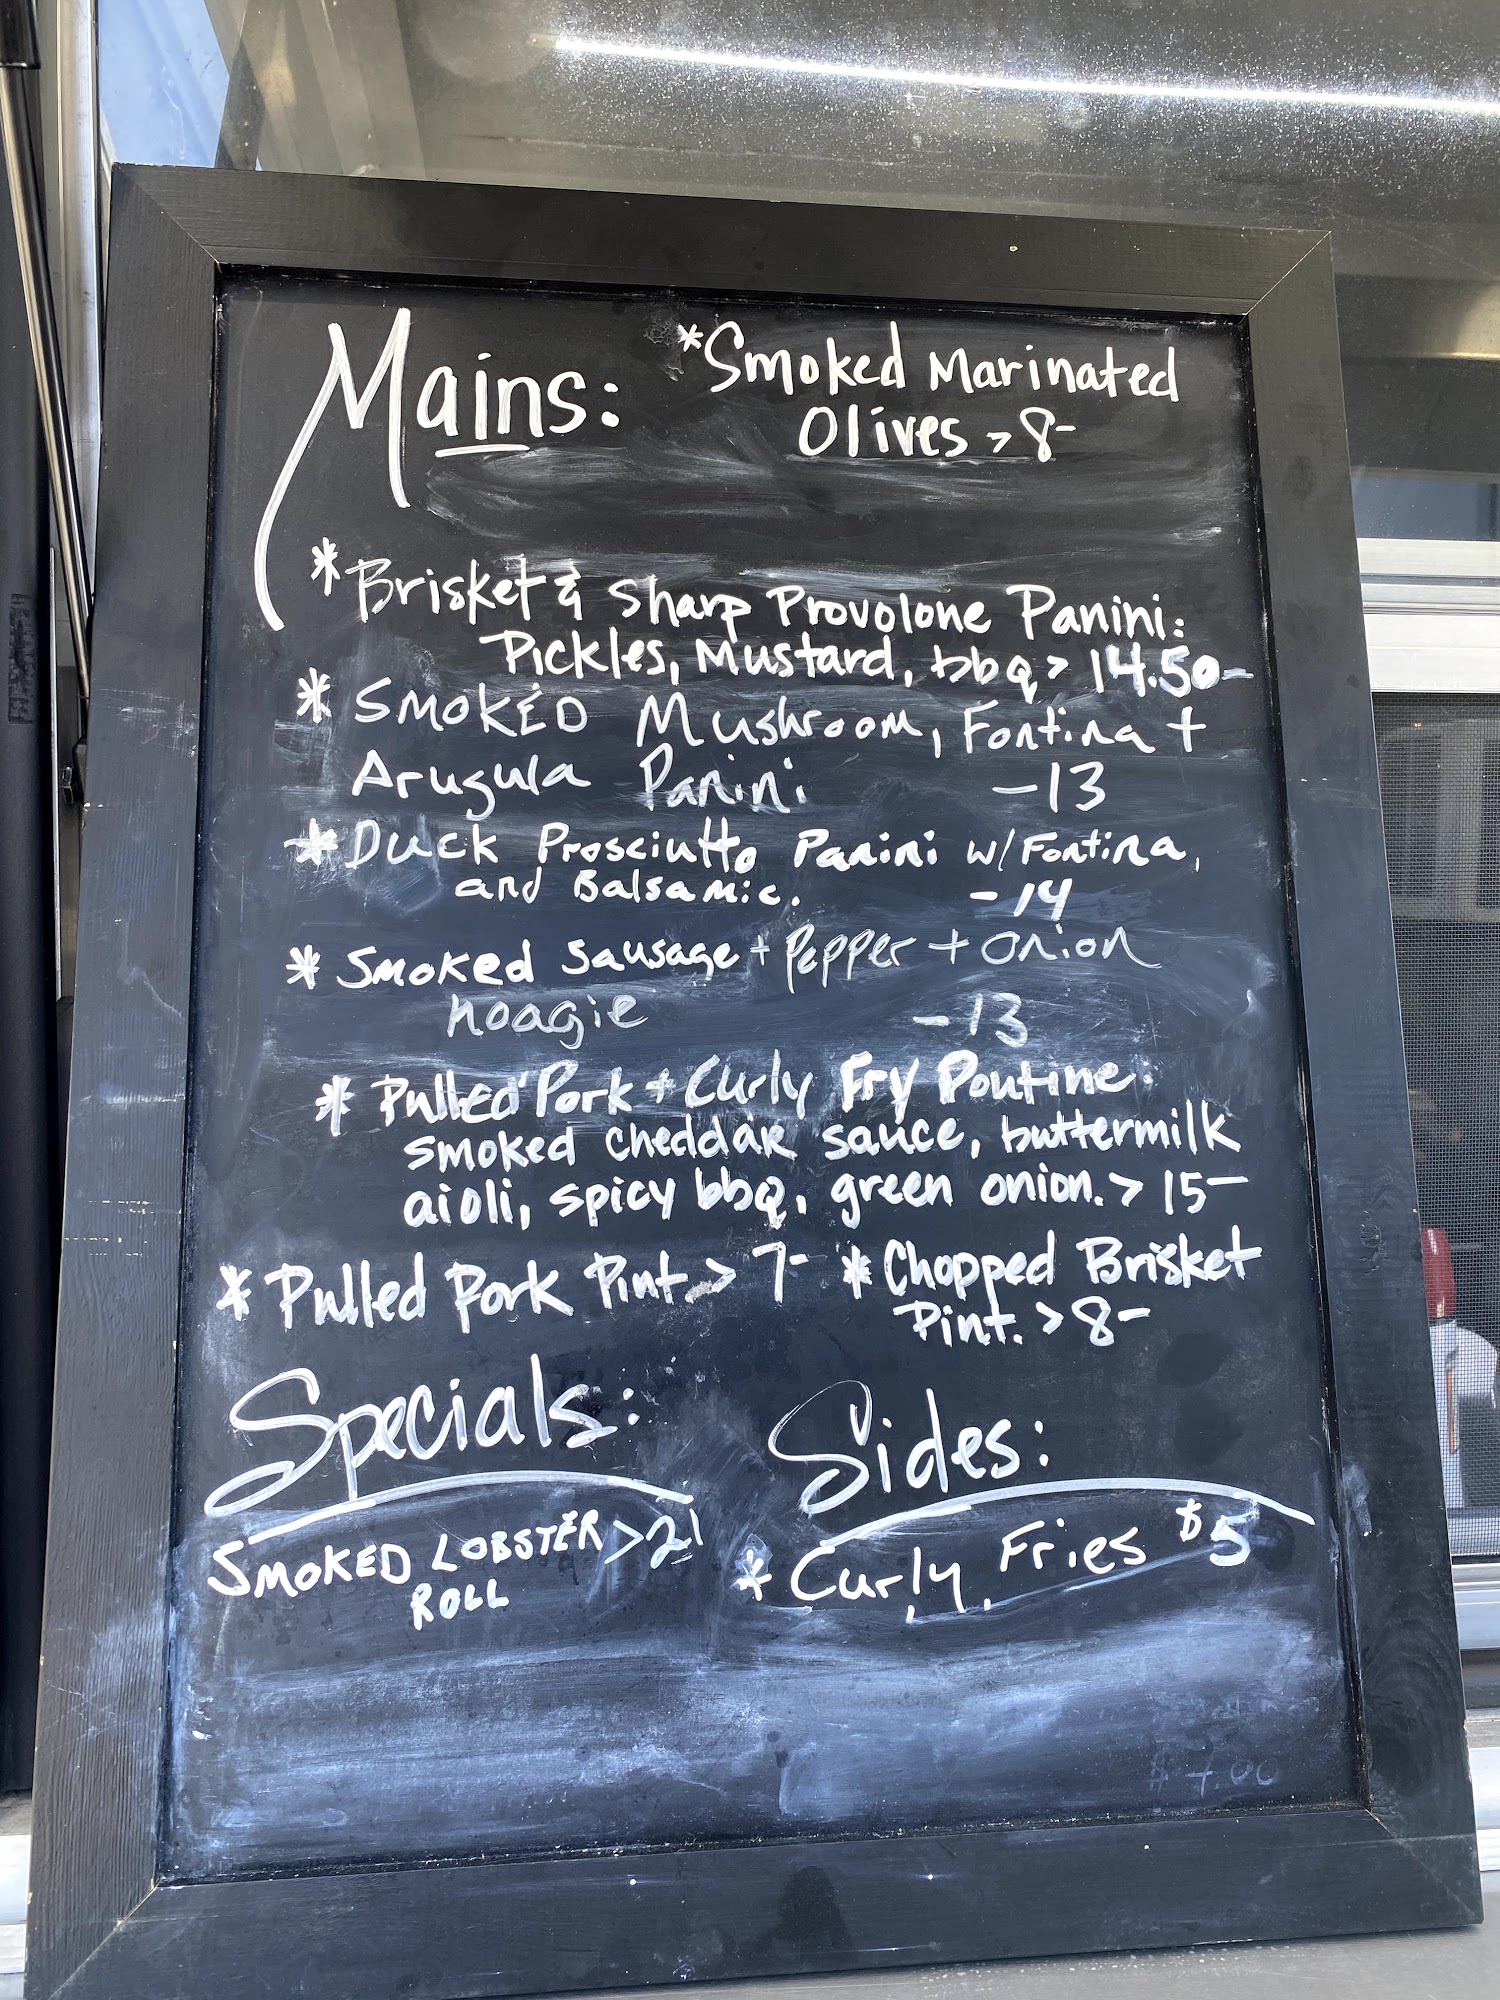 Mains:
*Smoked Marinated
Olives > 8-
*Brisket & Sharp Provolone Panini:
Pickles, Mustard, bbq > 14.50-
* Smoked Mushroom, Fontina +
Arugula Panini -13
*Duck Prosciutto Panini w/Fontina,
and Balsamic. -14
* Smoked Sausage + Pepper + Onion
hoagie -13
* Pulled Pork + Curly Fry Poutine:
smoked cheddar sauce, buttermilk
aioli, spicy bbq, green onion. > 15-
* Pulled Pork Pint > 7-
* Chopped Brisket
Pint. > 8-
Specials:
SMOKED LOBSTER > 21
ROLL
Sides:
* Curly Fries $5